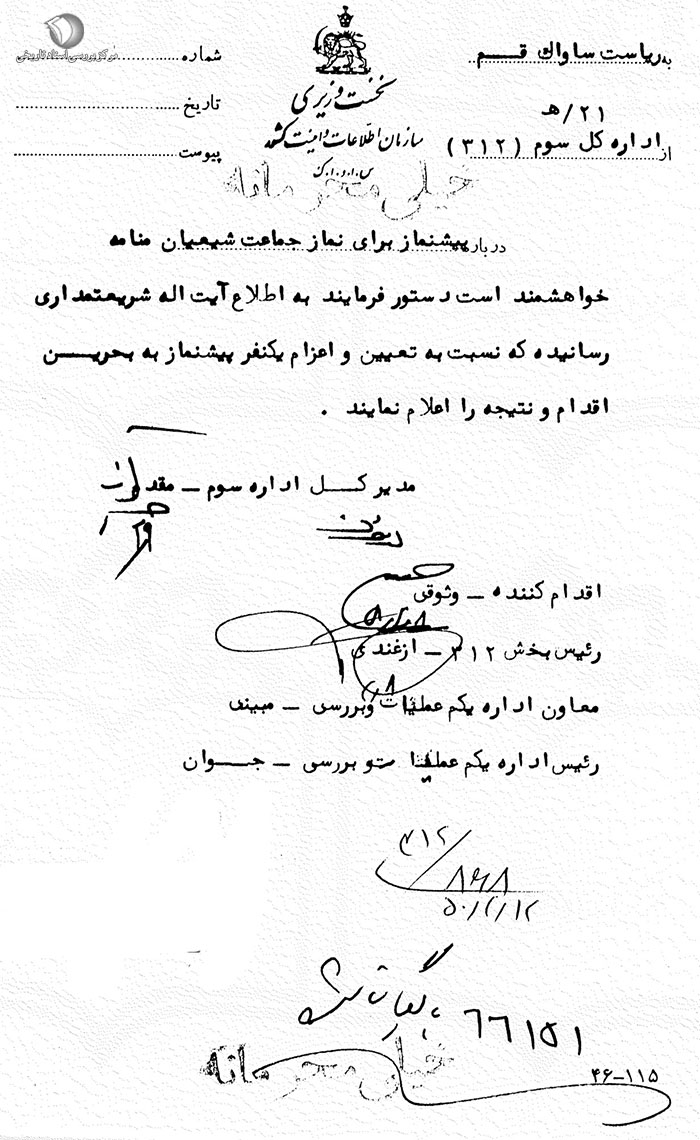 مرکز بررسی اسناد تاریخی
به ریاست ساواک قم
شماره
نخست وزیری
تاریخ
۲۱/هـ
سازمان اطلاعات و امنیت کشور
از اداره کل سوم (۳۱۲)
پیوست
س.ا.و.ا.ک
خیلی محرمانه
درباره پیشنماز برای نماز جماعت شیعیان منامه
خواهشمند است دستور فرمایند به اطلاع آیت اله شریعتمداری
رسانیده که نسبت به تعیین و اعزام یکنفر پیشنماز به بحرین
اقدام و نتیجه را اعلام نمایند .
مدیر کل اداره سوم ـ مقدم
اقدام کننده ـ وثوقی
رئیس بخش ۳۱۲ ـ ازغندی
معاون اداره یکم عملیات وبررسی ـ مبینی
رئیس اداره یکم عملیات و بررسی ـ جوان
۳۱۲/۸۶۸
۵۰/۲/۱۲
۶۶۱۵۱
۴۶-۱۱۵
خیلی محرمانه